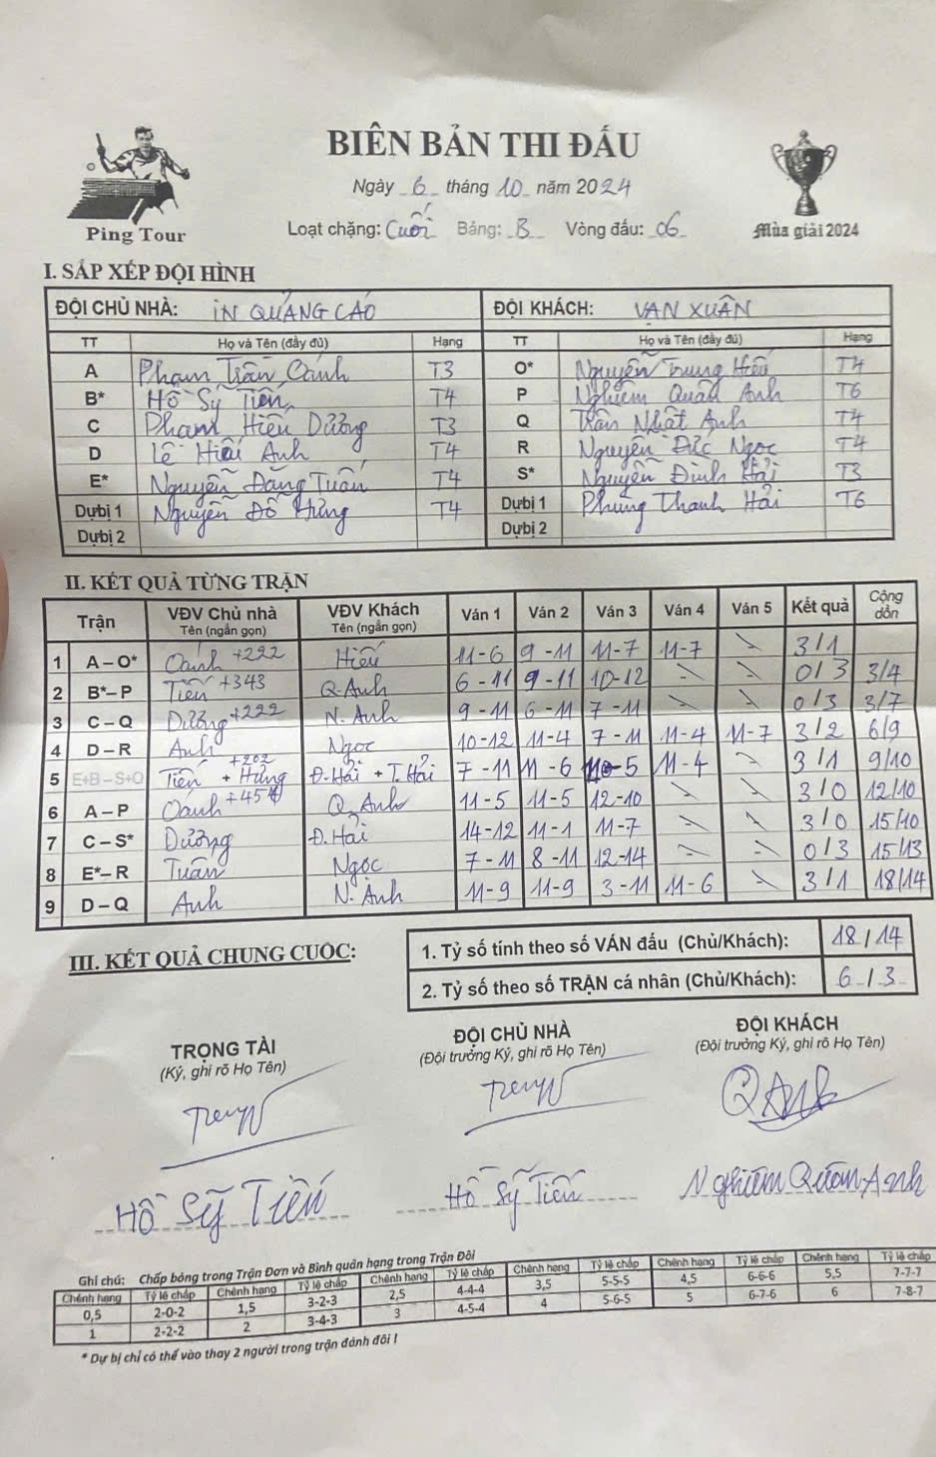 BIÊN BẢN THI ĐẤU
Ngày 6 tháng 10 năm 2024
Ping Tour
Loạt chặng: Cuối Bảng: B Vòng đấu: 06
Mùa giải 2024
I. SẮP XẾP ĐỘI HÌNH
ĐỘI CHỦ NHÀ: IN QUẢNG CÁO ĐỘI KHÁCH: VẠN XUÂN
TT Họ và Tên (đầy đủ) Hạng TT Họ và Tên (đầy đủ) Hạng
A Phạm Trần Cảnh T3 O* Nguyễn Trung Hiếu T4
B* Hồ Sỹ Tiến T4 P Nghiêm Quân Anh T6
C Phạm Hiếu Dương T3 Q Trần Nhật Anh T4
D Lê Hiếu Anh T4 R Nguyễn Đức Ngọc T4
E* Nguyễn Đăng Tuấn T4 S* Nguyễn Đình Hải T3
Dự bị 1 Nguyễn Đỗ Hùng T4 Dự bị 1 Phùng Thanh Hải T6
Dự bị 2 Dự bị 2
II. KẾT QUẢ TỪNG TRẬN
Trận VĐV Chủ nhà Tên (ngắn gọn) VĐV Khách Tên (ngắn gọn) Ván 1 Ván 2 Ván 3 Ván 4 Ván 5 Kết quả Cộng dồn
1 A – O* Cảnh +222 Hiếu 11-6 9-11 11-7 11-7 3/1
2 B* – P Tiến +343 Q.Anh 6-11 9-11 10-12 0/3 3/4
3 C – Q Dương +222 N.Anh 9-11 6-11 7-11 0/3 3/7
4 D – R Anh Ngọc 10-12 11-4 7-11 11-4 11-7 3/2 6/9
5 E+B – S+O Tiến + Hùng +202 Đ.Hải + T.Hải 7-11 11-6 -5 11-4 3/1 9/10
6 A – P Cảnh +454 Q.Anh 11-5 11-5 12-10 3/0 12/10
7 C – S* Dương Đ.Hải 14-12 11-1 11-7 3/0 15/10
8 E* – R Tuấn Ngọc 7-11 8-11 12-14 0/3 15/13
9 D – Q Anh N.Anh 11-9 11-9 3-11 11-6 3/1 18/14
III. KẾT QUẢ CHUNG CUỘC:
1. Tỷ số tính theo số VÁN đấu (Chủ/Khách): 18/14
2. Tỷ số theo số TRẬN cá nhân (Chủ/Khách): 6/3
TRỌNG TÀI ĐỘI CHỦ NHÀ ĐỘI KHÁCH
(Ký, ghi rõ Họ Tên) (Đội trưởng Ký, ghi rõ Họ Tên) (Đội trưởng Ký, ghi rõ Họ Tên)
QAnh
Hồ Sỹ Tiến Hồ Sỹ Tiến Nghiêm Quân Anh
Ghi chú: Chấp bóng trong Trận Đơn và Bình quân hạng trong Trận Đôi
Chênh hạng Tỷ lệ chấp Chênh hạng Tỷ lệ chấp Chênh hạng Tỷ lệ chấp Chênh hạng Tỷ lệ chấp Chênh hạng Tỷ lệ chấp Chênh hạng Tỷ lệ chấp
0,5 2-0-2 1,5 3-2-3 2,5 4-4-4 3,5 5-5-5 4,5 6-6-6 5,5 7-7-7
1 2-2-2 2 3-4-3 3 4-5-4 4 5-6-5 5 6-7-6 6 7-8-7
* Dự bị chỉ có thể vào thay 2 người trong trận đánh đôi !